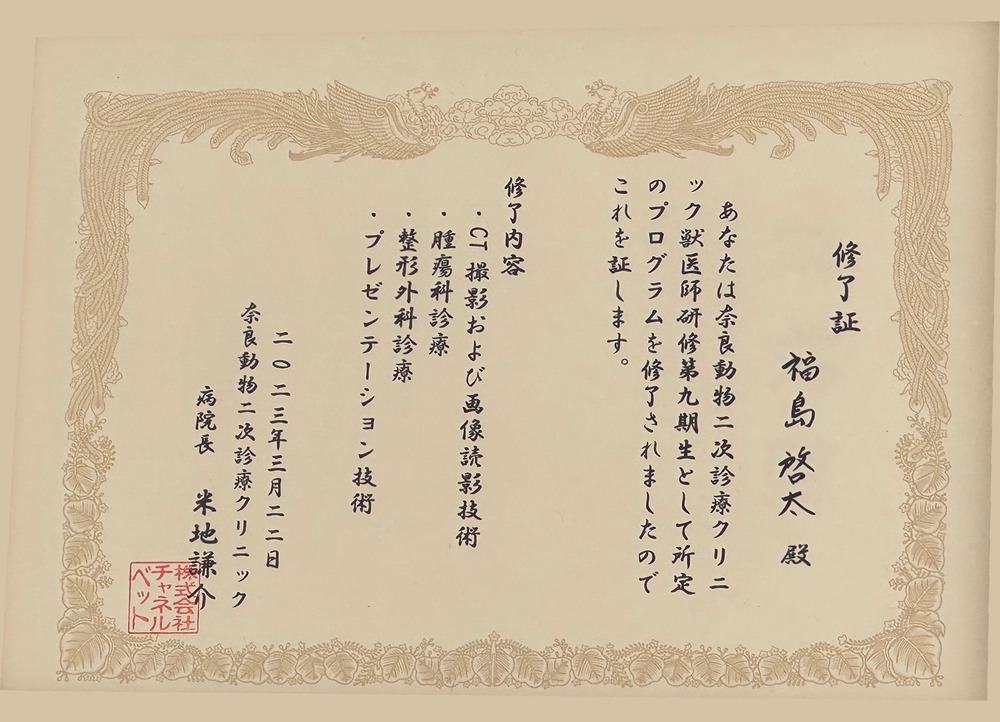 修了証
福島 啓太 殿
あなたは奈良動物二次診療クリニ
ック獣医師研修第九期生として所定
のプログラムを修了されましたので
これを証します。
修了内容
・CT撮影および画像読影技術
・腫瘍科診療
・整形外科診療
・プレゼンテーション技術
二〇二三年三月二二日
奈良動物二次診療クリニック
病院長 米地謙介
株式会社
チャネル
ベット